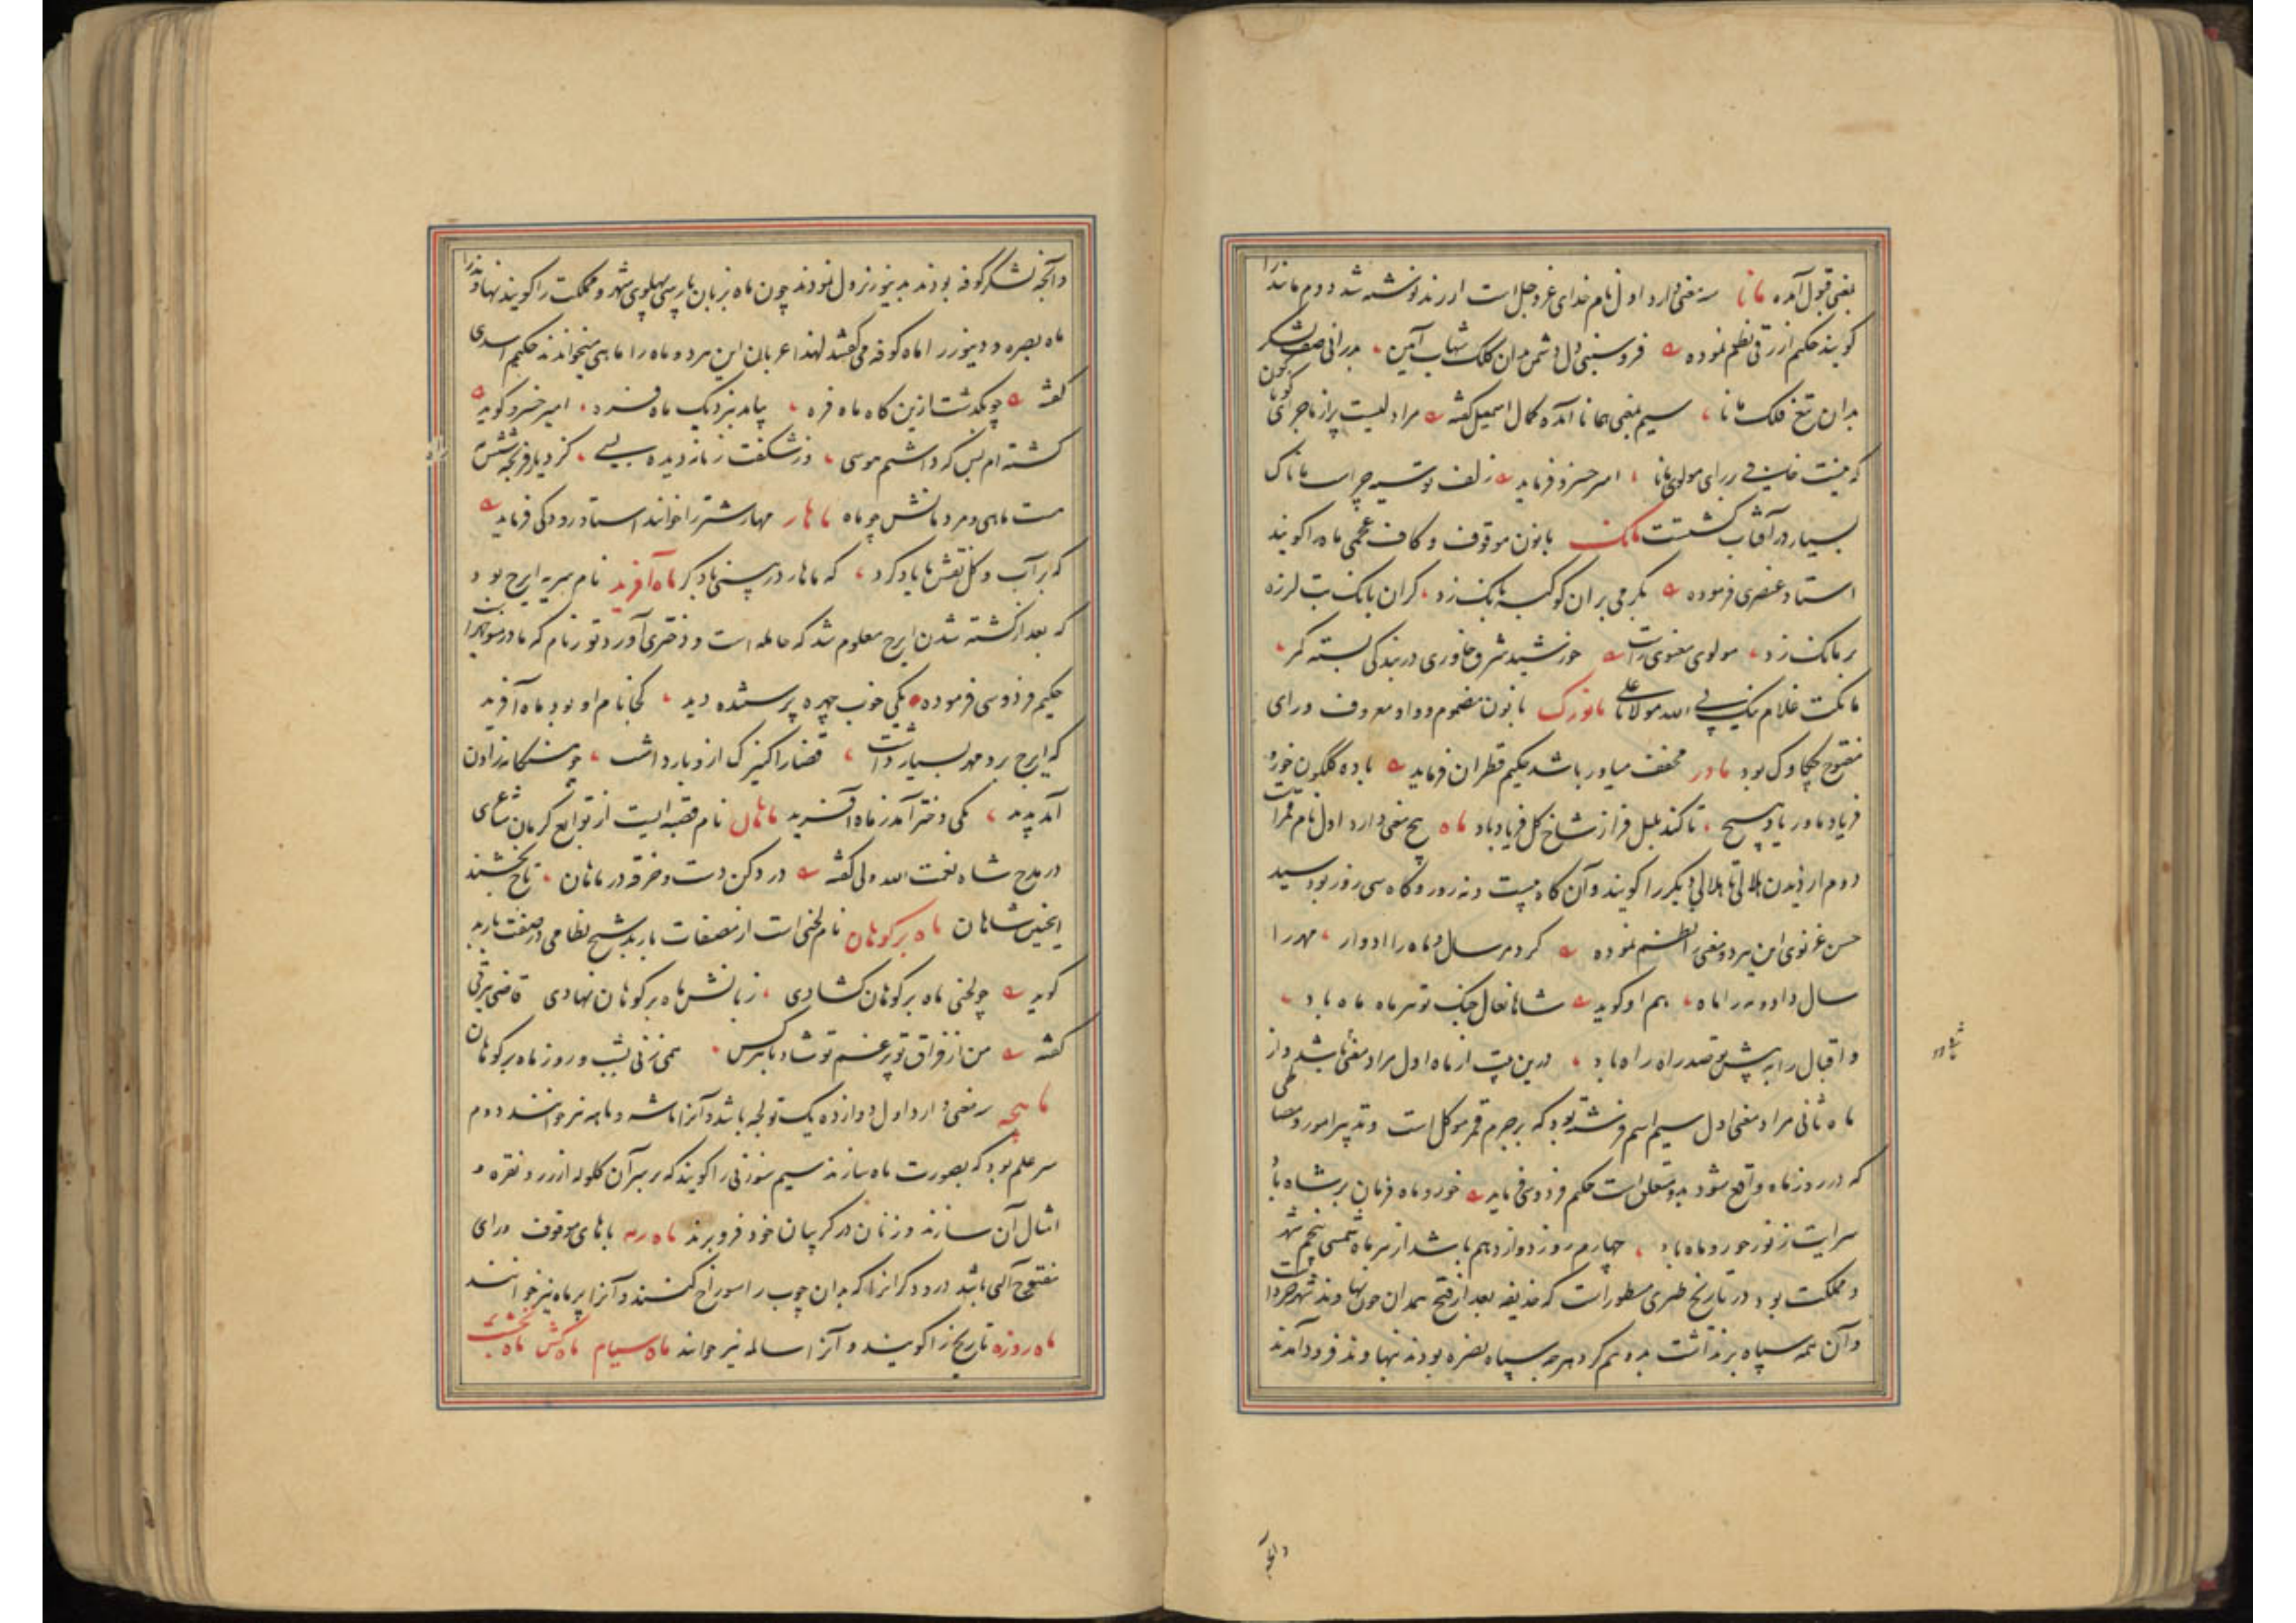 بمعنی قبول آمده مانا سه معنی دارد اول نام خدای عز و جل است از زند نوشته شد دوم مانند را
گویند حکیم ازرقی نظم نموده فرو سنبی دل دشمن بدان کلک شهاب آیین بدرانی صف لشکر
بدان تیغ فلک مانا سیم بمعنی همانا آمده کمال اسمعیل گفته مرا دلیست پر از ماجرای گوناگون
که نیست خالی رای مولوی مانا امیر خسرو فرماید زلف تو سیه چراست مانا ک
بسیار در آفتاب گشتست مانک با نون موقوف و کاف عجمی ماه را گویند
استاد عنصری فرموده بکرمی بران کوکبه بانک زد کزان بانک تب لرزه
بر مانک زد مولوی معنوی راست خورشید شرق خاوری در بندگی بسته کمر
مانکت غلام نیک پی الله مولانا علی مانورک با نون مضموم و واو معروف و رای
مفتوح چکاوک بود ماور مخفف میاور باشد حکیم قطران فرماید باده گلگون خور و
فریاد ماور یاد هیچ تا کند بلبل فراز شاخ گل فریاد یاد ماه پنج معنی دارد اول نام قمر است
دوم از دیدن هلالی تا هلالی دیگر را گویند و آن گاه بیست و نه روز و گاه سی روز بود سید
حسن غزنوی این هر دو معنی را نظم نموده کرد مر سال و ماه را ادوار مهر را
سال داد و مه را ماه هم او گوید شاها نعال خنگ تو سر ماه ماه باد
و اقبال را به پیش تو صدر راه راه باد درین بیت از ماه اول مراد معنی ثانی باشد و از
ماه ثانی مراد معنی اول سیم اسم فرشته بود که بر جرم قمر موکل است و تدبیر امور و مصالحی
که در روز ماه واقع شود بدو متعلق است حکیم فردوسی فرماید خور و ماه فرمان بر شاه باد
سرایت ز نور خور و ماه باد چهارم روز دوازدهم باشد از هر ماه شمسی پنجم شهر
و مملکت بود در تاریخ طبری مسطور است که حذیفه بعد از فتح همدان چون نهاوند شهر خرد است
و آن همه سپاه برنداشت بدو نیم کرد هرچه سپاه بصره بودند نهاوند فرود آمدند
وآنچه
وآنچه لشکر کوفه بودند بدینور نزول نمودند چون ماه بزبان پارسی پهلوی شهر و مملکت را گویند نهاوند را
ماه بصره و دینور را ماه کوفه می گفتند لهذا عربان این هر دو ماه را ماهین میخوانند حکیم اسدی
گفته چو بگذشت ازین گاه ماه فره بیامد بنزدیک ماه امیر خسرو گوید
گشته ام بس که داشتم هوسی در شگفت ز نازدیده بسی
مست ماهی و مردمانش چو ماه ماهار مهار شتر را خوانند استاد رودکی فرماید
که بر آب و گل نقش ما یاد کرد که ماهار در بینی باد کرد ماه آفرید نام سریه ایرج بود
که بعد از کشته شدن ایرج معلوم شد که حامله است و دختری آورد تور نام که مادر منوچهر است
حکیم فردوسی فرموده یکی خوب چهره پرستنده دید کجا نام او بود ماه آفرید
که ایرج برو مهر بسیار داشت قضا را کنیزک ازو بار داشت چو هنگامه زادن
آمد پدید یکی دختر آمد ز ماه آفرید ماهان نام قصبه ایست از توابع کرمان شاعری
در مدح شاه نعمت الله ولی گفته در دکن دست و خرقه در ماهان تاج بخشند
اینچنین شاهان ماه بر کوهان نام لحنی است از مصنفات باربد شیخ نظامی در صفت باربد
گوید چو لحنی ماه بر کوهان گشادی زبانش ماه بر کوهان نهادی قاضی شرقی
گفته من از فراق تو پر غم تو شاد با هر کس همی زنی بشب و روز ماه بر کوهان
ماهچه سه معنی دارد اول دوازده یک تولجه باشد و آنرا ماشه و ماهه نیز خوانند دوم
سر علم بود که بصورت ماه سازند سیم سوزنی را گویند که بر سر آن گلوله از زر و نقره و
امثال آن سازند و زنان در گریبان خود فرو برند ماه رمه با های موقوف و رای
مفتوح آلتی باشد درودگرانرا که بدان چوب را سوراخ کنند و آنرا برماه نیز خوانند
ماه روزه تاریخ را گویند و آنرا سالمه نیز خوانند ماه سیام ماه کش ماه نخشب